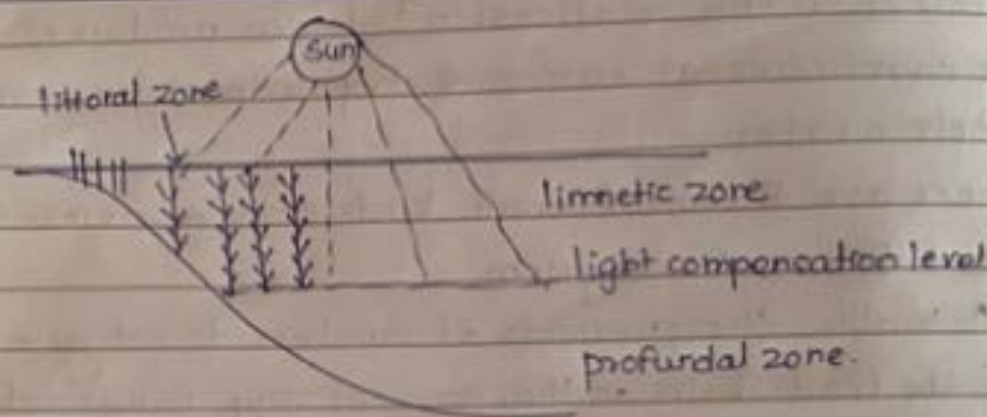 Sun
littoral zone
limnetic zone
light compensation level
profundal zone.